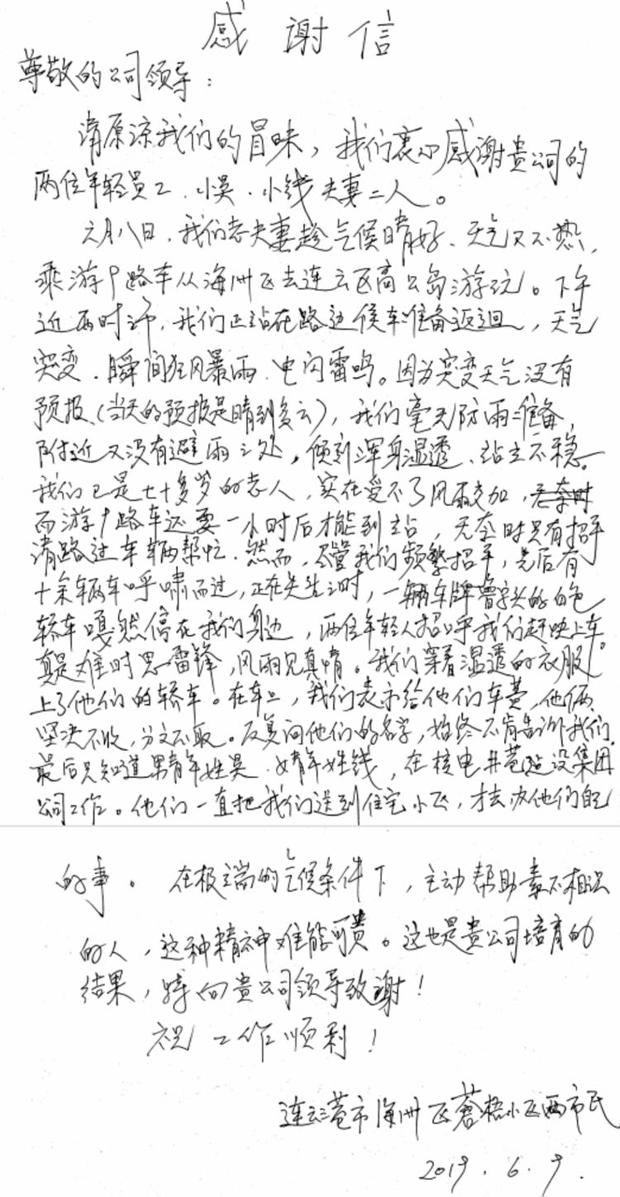 感谢信
尊敬的公司领导：
请原谅我们的冒昧，我们衷心感谢贵公司的
两位年轻员工．小吴．小钱夫妻二人。
六月八日，我们老夫妻趁气候晴好、天气又不热，
乘游1路车从海州区去连云区高公岛游玩。下午
近两时许，我们正站在路边候车准备返迴，天气
突变．瞬间狂风暴雨．电闪雷鸣。因为突变天气没有
预报（当天的预报是晴到多云），我们毫无防雨准备，
附近又没有避雨之处，倾刻浑身湿透、站立不稳。
我们已是七十多岁的老人，实在受不了风雨交加，无奈时
而游1路车还要一小时后才能到站，无奈时只有招手
请路过车辆帮忙．然而，尽管我们频繁招手，先后有
十余辆车呼啸而过，正在失望时，一辆车牌鲁字头的白色
轿车嘎然停在我们身边，两位年轻人招呼我们赶快上车
真是难时思雷锋，风雨见真情。我们穿着湿透的衣服
上了他们的轿车。在车上，我们表示给他们车费，他俩
坚决不收，分文不取。反复问他们的名字，始终不肯告诉我们
最后只知道男青年姓吴．女青年姓钱，在核电井巷建设集团
公司工作。他们一直把我们送到住宅小区，才去办他们自己
的事。在极端的气候条件下，主动帮助素不相识
的人，这种精神难能可贵。这也是贵公司培育的
结果，特向贵公司领导致谢！
祝工作顺利！
连云港市海州区苍梧小区两市民
2019.6.9.